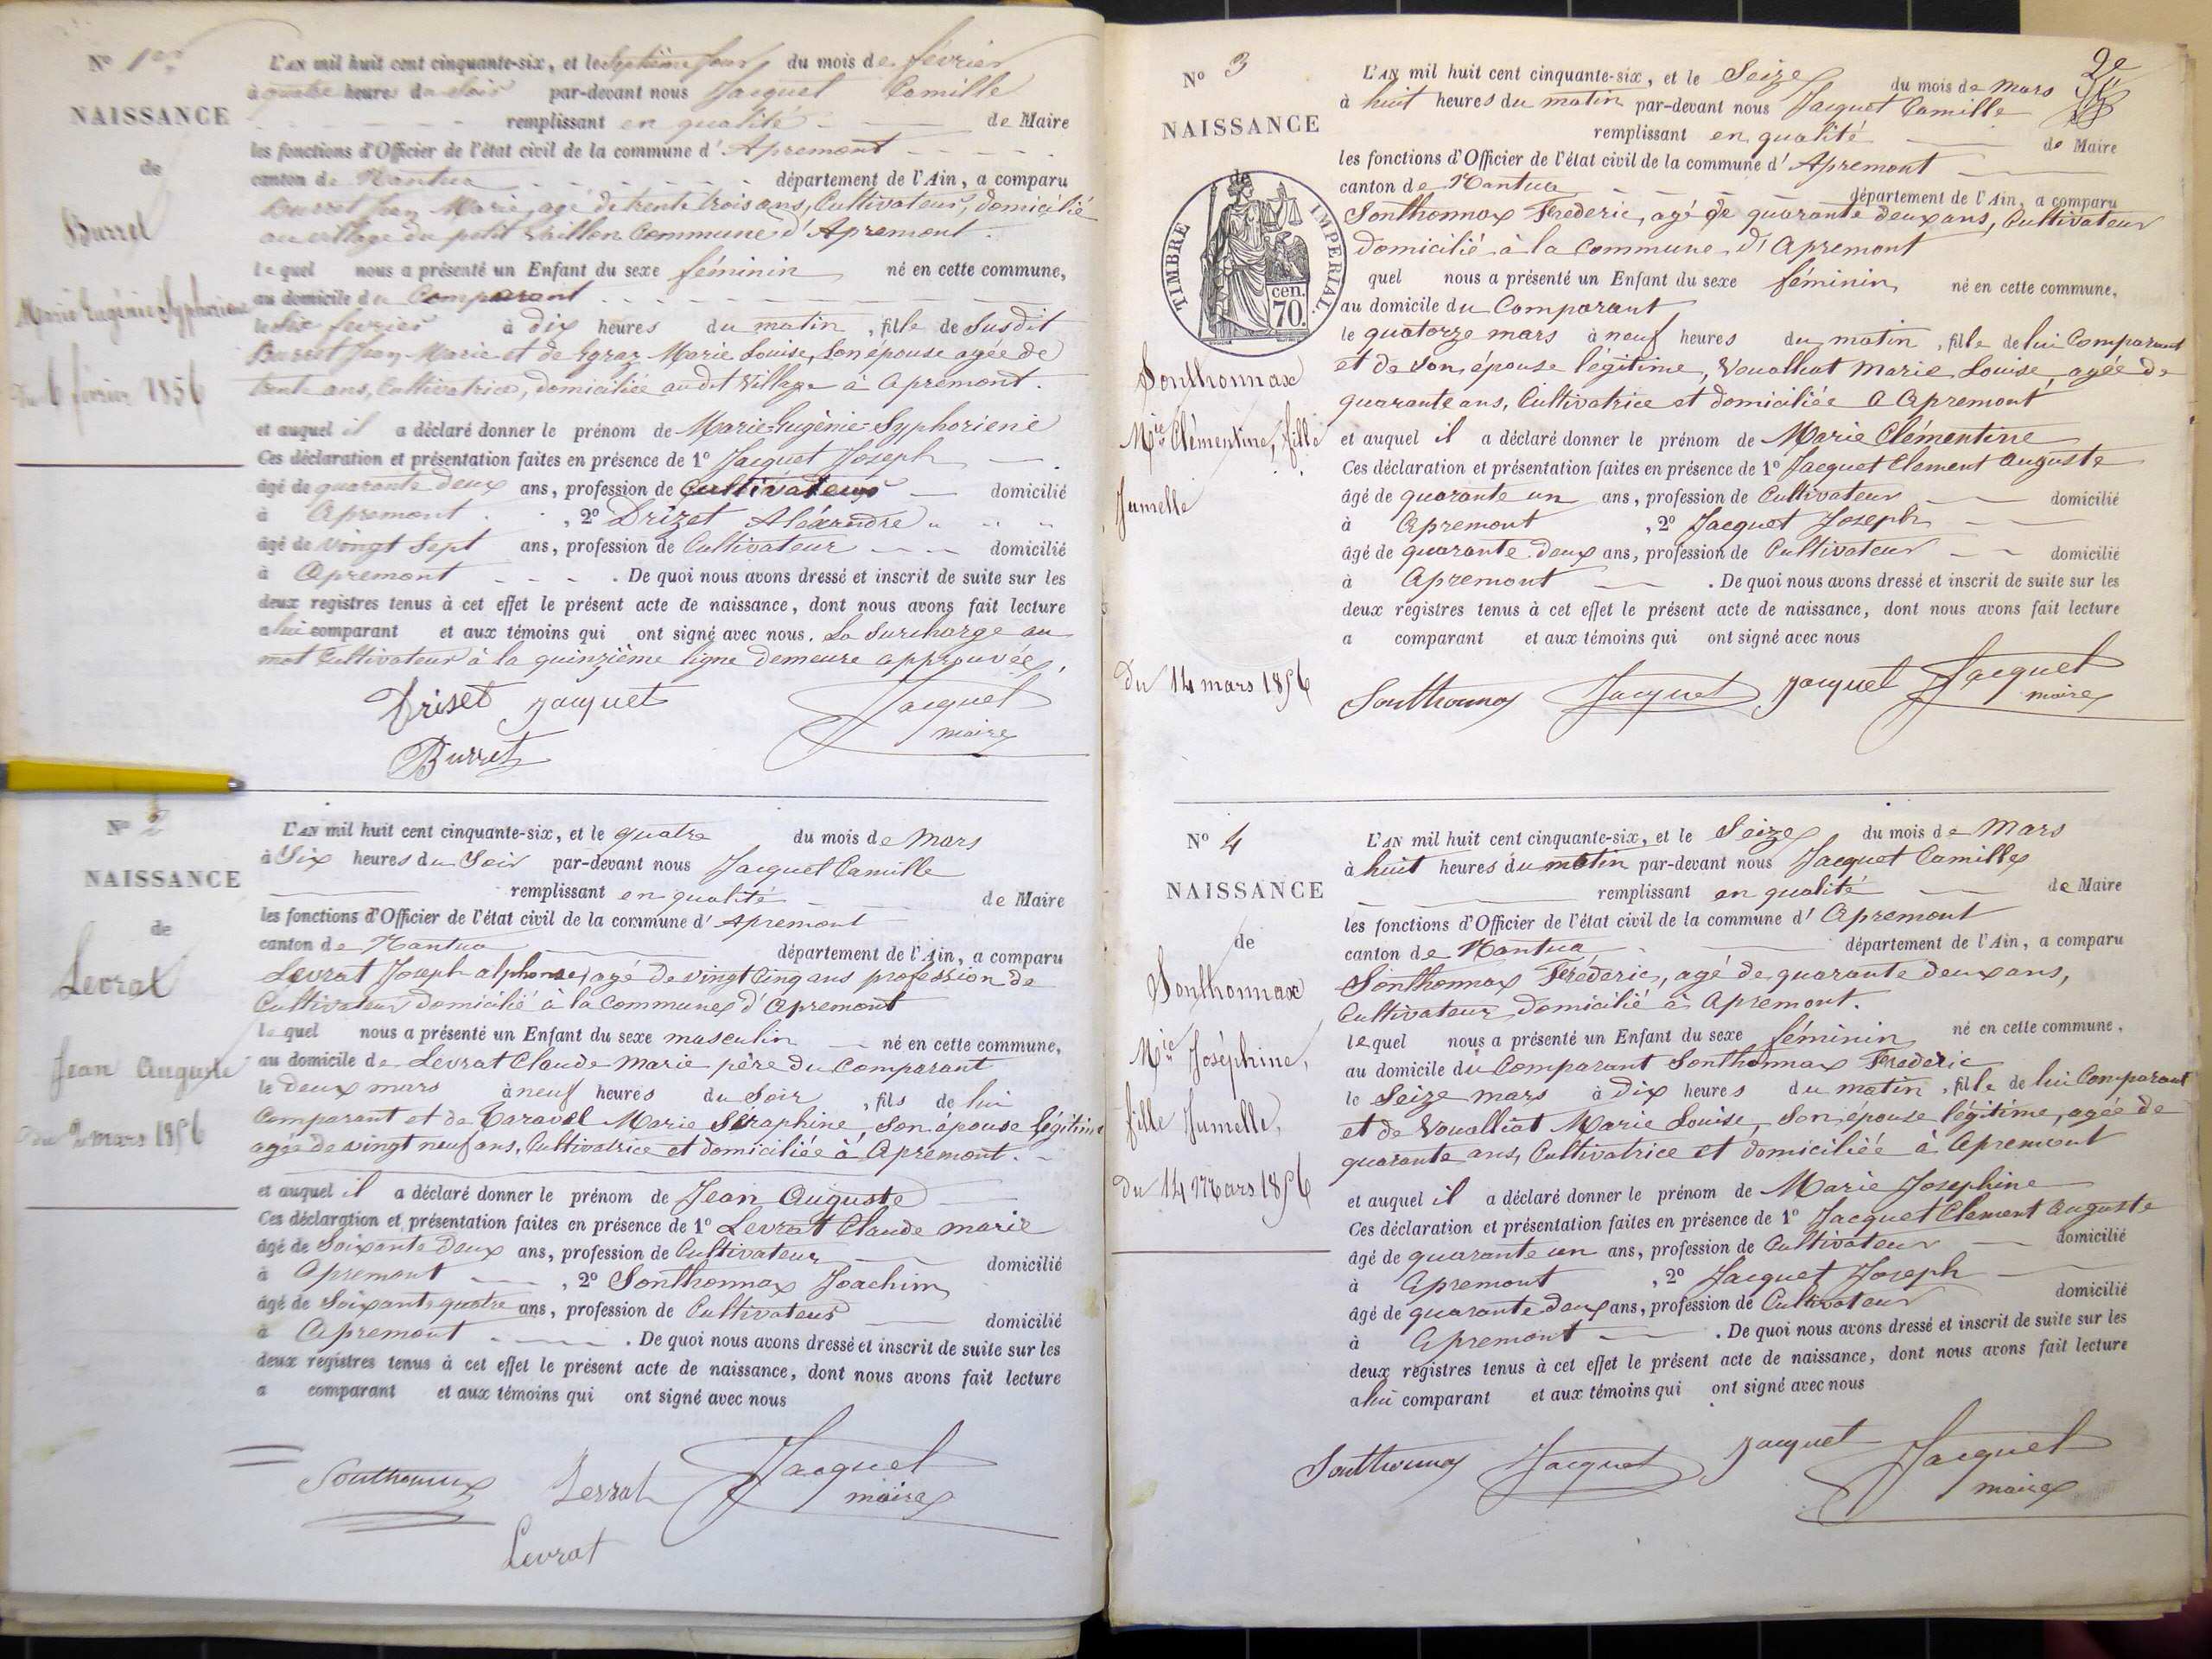 N° 1er
NAISSANCE
de
Burret
Marie Eugénie Syphoriene
du 6 février 1856
L'AN mil huit cent cinquante-six, et le Septième Jour du mois de février
à quatre heures du Soir par-devant nous Jacquet Camille
remplissant en qualité de Maire
les fonctions d'Officier de l'état civil de la commune d' Apremont
canton de Nantua département de l'Ain, a comparu
Burret Jean Marie, agé de trente trois ans, Cultivateur, domicilié
au village du petit Vaillon Commune d'Apremont.
le quel nous a présenté un Enfant du sexe féminin né en cette commune,
au domicile du Comparant
le Six fevrier à dix heures du matin, fille de Susdit
Burret Jean Marie et de Egraz Marie Louise, Son épouse agée de
trente ans, Cultivatrice, domiciliée audit Village à Apremont.
et auquel il a déclaré donner le prénom de Marie=Eugénie=Syphoriene
Ces déclaration et présentation faites en présence de 1° Jacquet Joseph
âgé de quarante deux ans, profession de Cultivateur domicilié
à Apremont, 2° Drizet Aléxendre
âgé de Vingt Sept ans, profession de Cultivateur domicilié
à Apremont. De quoi nous avons dressé et inscrit de suite sur les
deux registres tenus à cet effet le présent acte de naissance, dont nous avons fait lecture
a lui comparant et aux témoins qui ont signé avec nous. La Surcharge au
mot Cultivateur à la quinzième ligne demeure approuvée,
Driset Jacquet Jacquet
maire
Burret
N° 2
NAISSANCE
de
Levrat
Jean Auguste
du 2 mars 1856
L'AN mil huit cent cinquante-six, et le quatre du mois de Mars
à Six heures du Soir par-devant nous Jacquet Camille
remplissant en qualité de Maire
les fonctions d'Officier de l'état civil de la commune d' Apremont
canton de Nantua département de l'Ain, a comparu
Levrat Joseph alphonse, agé de vingt Cinq ans profession de
Cultivateur domicilié à la Commune d'Apremont
le quel nous a présenté un Enfant du sexe masculin né en cette commune,
au domicile de Levrat Claude Marie père du Comparant
le deux mars à neuf heures du Soir, fils de lui
Comparant et de Taravel Marie Séraphine, Son épouse légitime
agée de vingt neuf ans, Cultivatrice et domiciliée à Apremont.
et auquel il a déclaré donner le prénom de Jean Auguste
Ces déclaration et présentation faites en présence de 1° Levrat Claude marie
âgé de Soixante Deux ans, profession de Cultivateur domicilié
à Apremont, 2° Sonthonnax Joachim
âgé de Soixante quatre ans, profession de Cultivateur domicilié
à Apremont. De quoi nous avons dressé et inscrit de suite sur les
deux registres tenus à cet effet le présent acte de naissance, dont nous avons fait lecture
a comparant et aux témoins qui ont signé avec nous
Sonthonnax Levrat Jacquet
maire
Levrat
2e
N° 3
NAISSANCE
de
TIMBRE IMPERIAL
70 cen.
Sonthonnax
Mie Clémentine, fille
Jumelle
Du 14 mars 1856
L'AN mil huit cent cinquante-six, et le Seize du mois de Mars
à huit heures du matin par-devant nous Jacquet Camille
remplissant en qualité de Maire
les fonctions d'Officier de l'état civil de la commune d' Apremont
canton de Nantua département de l'Ain, a comparu
Sonthonnax Frederic, agé de quarante deux ans, Cultivateur
domicilié à la Commune d'Apremont
quel nous a présenté un Enfant du sexe féminin né en cette commune,
au domicile du Comparant
le quatorze mars à neuf heures du matin, fille de lui Comparant
et de Son épouse légitime, Voualhat Marie Louise, agée de
quarante ans, Cultivatrice et domiciliée à Apremont
et auquel il a déclaré donner le prénom de Marie Clémentine
Ces déclaration et présentation faites en présence de 1° Jacquet Clement Auguste
âgé de quarante un ans, profession de Cultivateur domicilié
à Apremont, 2° Jacquet Joseph
âgé de quarante deux ans, profession de Cultivateur domicilié
à Apremont. De quoi nous avons dressé et inscrit de suite sur les
deux registres tenus à cet effet le présent acte de naissance, dont nous avons fait lecture
a comparant et aux témoins qui ont signé avec nous
Sonthonnax Jacquet Jacquet Jacquet
maire
N° 4
NAISSANCE
de
Sonthonnax
Mie Joséphine,
fille Jumelle,
Du 14 Mars 1856
L'AN mil huit cent cinquante-six, et le Seize du mois de Mars
à huit heures du matin par-devant nous Jacquet Camille
remplissant en qualité de Maire
les fonctions d'Officier de l'état civil de la commune d' Apremont
canton de Nantua département de l'Ain, a comparu
Sonthonnax Fréderic, agé de quarante deux ans,
Cultivateur domicilié à Apremont.
le quel nous a présenté un Enfant du sexe féminin né en cette commune,
au domicile du Comparant Sonthonnax Frederic
le Seize mars à Dix heures du matin, fille de lui Comparant
et de Voualliat Marie Louise, Son epouse légitime, agée de
quarante ans, Cultivatrice et domiciliée à Apremont
et auquel il a déclaré donner le prénom de Marie Josephine
Ces déclaration et présentation faites en présence de 1° Jacquet Clement Auguste
âgé de quarante un ans, profession de Cultivateur domicilié
à Apremont, 2° Jacquet Joseph
âgé de quarante deux ans, profession de Cultivateur domicilié
à Apremont. De quoi nous avons dressé et inscrit de suite sur les
deux registres tenus à cet effet le présent acte de naissance, dont nous avons fait lecture
a lui comparant et aux témoins qui ont signé avec nous
Sonthonnax Jacquet Jacquet Jacquet
maire